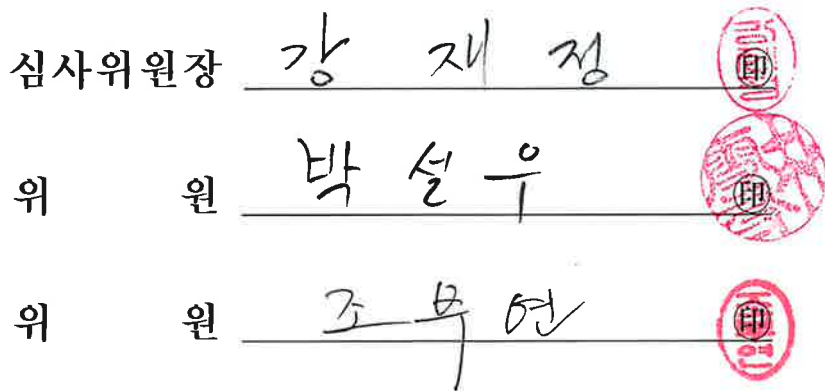 심사위원장 강 재 정 ㊞
위 원 박 설 우 ㊞
위 원 조 부 연 ㊞